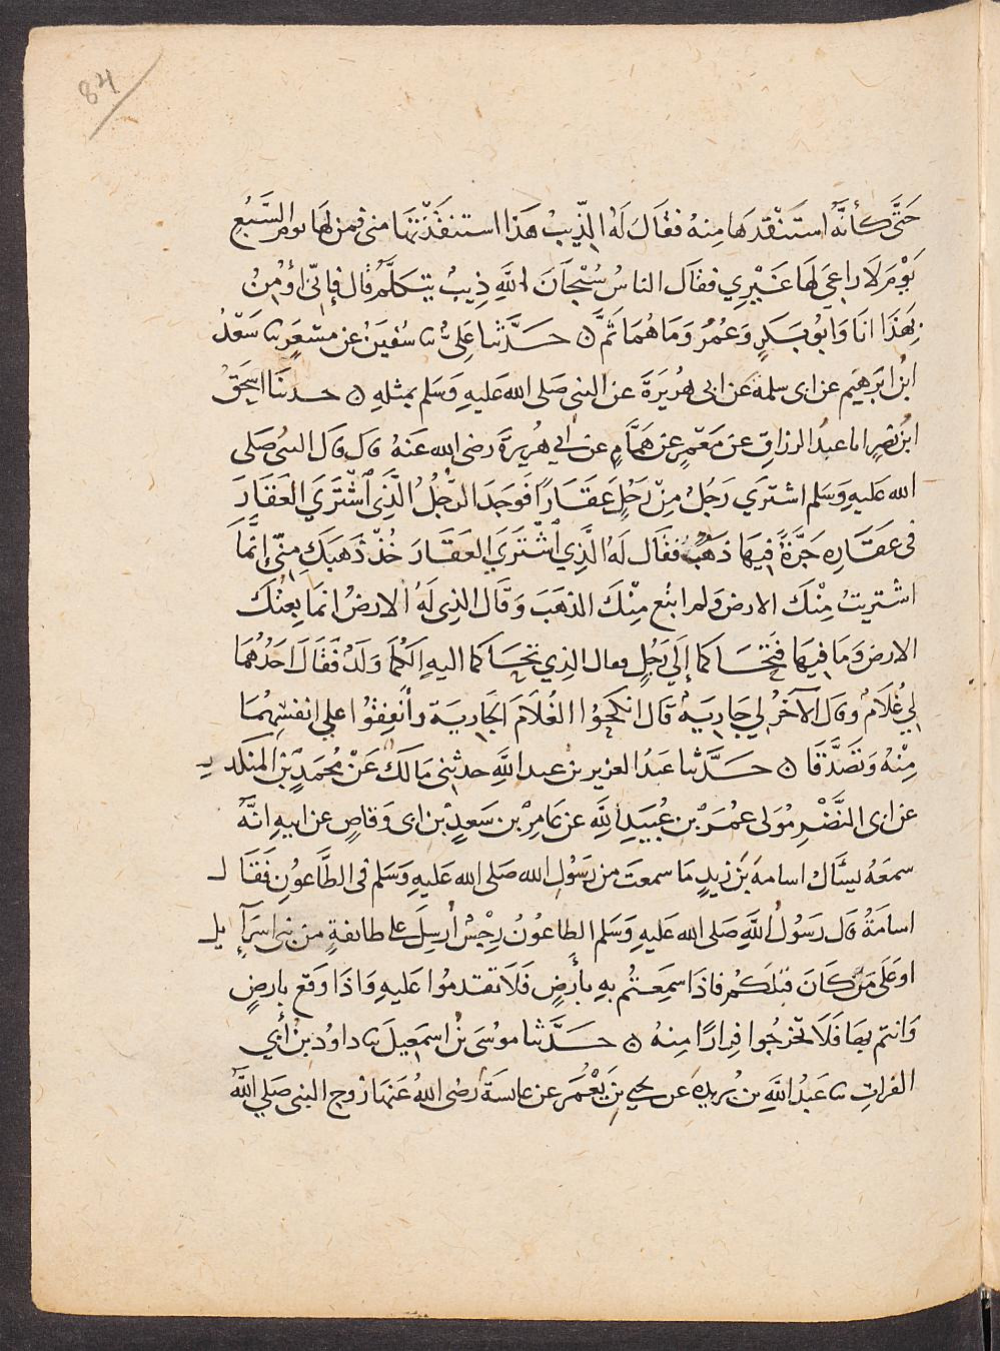 84
حَتَّى كأنَّهُ استَنْقَدَهَا مِنهُ فقَالَ لَهُ الذِّيبُ هَذا استنقَذْتَهَا منى فمن لهَا يوم السَّبُعِ
يَوْمَ لَا رَاعِىَ لهَا غَيْرِي فقال الناسُ سُبْحَانَ اللهِ ذِيبٌ يتكلَّم قال فإنِّى اؤْمِنُ
بِهَذَا انَا وَابُو بَكرٍ وَعُمَرُ وَمَا هُمَا ثَمَّ ۞ حَدَّثنا عَلِىٌّ ثنا سُفينُ عن مسْعَرٍ ثنا سَعْدُ
ابنُ ابرهيم عن ابى سلمة عَن ابى هرُيَرَةَ عن النبى صَلى الله عَليهِ وَسَلم بمثلهِ ۞ حدثنَا اسحٰقُ
ابنُ نصْرٍ انا عبدُ الرزاقِ عن مَعْمرٍ عن هَمَّامٍ عن ابي هرُيرةَ رضى الله عَنهُ قال قال النبىُ صَلى
الله عَليهِ وَسَلم اشترَي رَجُلٌ مِنْ رَجُلٍ عَقَارًا فَوَجَدَ الرَّجُلُ الَّذِى اشْتَرَي العَقَارَ
فى عَقَارِه جَرَّةً فيهَا ذَهَبٌ فقَال لَهُ الَّذِي اشْتَرَي العَقَارَ خُذْ ذَهَبَكِ مِنّى إنَّمَا
اشتريتُ مِنْكَ الارضَ ولم ابتع مِنْكَ الذهَبَ وَقَال الذِى لَهُ الارضُ انمَا بِعتُكَ
الارضَ وَمَا فيهَا فَتَحَاكما إلَي رَجُلٍ فقال الذِي تحَاكما اليهِ الكُمَا وَلَدٌ فَقَالَ احَدُهُمَا
لِي غُلَامٌ وقال الآخرُ لي جَارِيَةٌ قَال انكِحُوا الغُلَامَ الجَاريَةَ وأنْفِقُوا علي انفسِهِمَا
مِنْهُ وَتَصَدَّقَا ۞ حَدَّثنا عَبدُ العزيز بن عبد اللَّهِ حدثنى مَالكٌ عَنْ مُحمَّدِ بْنِ المنكدر
عن ابى النَّضْرِ مَوْلى عمُرَ بْن عُبيَدِ اللَّهِ عن عَامِرِ بْن سَعدٍ بْن ابى وَقاصٍ عن ابيه انَّهُ
سمعَهُ يسئَالُ اسامةَ بَن زيدٍ مَا سمعتَ من رَسُولِ الله صَلى الله عَليهِ وَسَلم فى الطَّاعُونِ فَقَال
اسامَةُ قال رَسُولُ اللَّهِ صَلى الله عَليهِ وَسَلم الطاعُونُ رِجْسٌ اُرسِلَ على طائفةٍ من بنى اسرَآئيل
اوعَلَى مَن كَانَ قبْلكُم فاذَا سَمِعتُم بهِ بأَرضٍ فَلَا تقدمُوا عَليهِ وَاذَا وَقَع بارضٍ
وَانتم بهَا فَلَا تخْرجُوا فِرارًا مِنهُ ۞ حَدَّثنا موُسَى بنُ اسمعيل ثنا داودُ بنُ أَبي
الفراتِ ثنا عَبدُ اللَّهِ بن بُريدةَ عَن يحيى بْن يَعْمَر عن عايشةَ رَضى اللهُ عَنهَا زوج النبى صَلي اللهُ